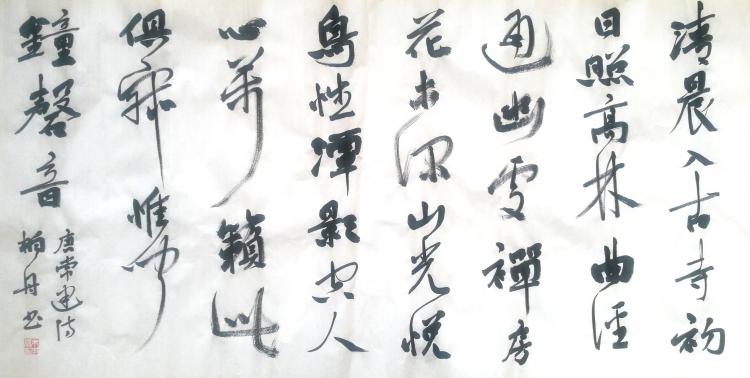 清晨入古寺初
日照高林曲徑
通幽處禪房
花木深山光悅
鳥性潭影空人
心萬籟此
俱寂惟聞
鐘磬音
唐常建诗
丹书